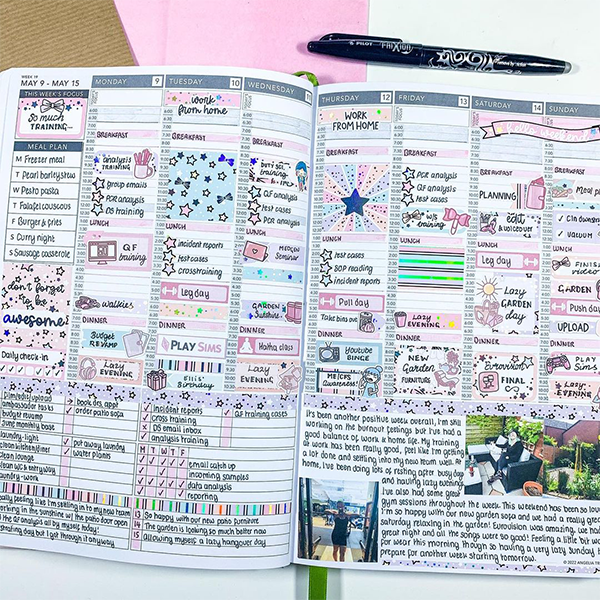 PILOT FRIXION
WEEK 19
MAY 9 - MAY 15
THIS WEEK'S FOCUS
SO MUCH
TRAINING...
MEAL PLAN
M Freezer meal
T Pearl barley stew
W Pesto pasta
T Falafel couscous
F Burger & fries
S Curry night
S Sausage casserole
don't
forget
to be
awesome
Daily check-in
MONDAY 9
BREAKFAST
analysis
TRAINING
group emails
PQR analysis
QF analysis
DS training
LUNCH
QF
training
walkies
DINNER
Budget
REVAMP
Lazy
EVENING
TUESDAY 10
work
from home
BREAKFAST
LUNCH
incident reports
test cases
crosstraining
Leg day
DINNER
PLAY SIMS
Elli's
Birthday
WEDNESDAY
BREAKFAST
training
PQR analysis
QF analysis
test cases
LUNCH
MEDLIN
Seminar
GARDEN
Sunshine
DINNER
Hatha class
Lazy
EVENING
THURSDAY 12
WORK
FROM HOME
BREAKFAST
LUNCH
test cases
SOP reading
incident reports
Pull day
Take bins out
DINNER
Youtube
ME/CFS
Awareness
FRIDAY 13
BREAKFAST
PQR analysis
QF analysis
test cases
W/S
training
LUNCH
Lazy
EVENING
DINNER
NEW
Garden
FURNITURE
SATURDAY 14
BREAKFAST
PLANNING
edit
& voiceover
LUNCH
Leg day
Lazy
GARDEN
day
DINNER
Eurovision
FINAL
SUNDAY
BREAKFAST
Meal p
VACUUM
LUNCH
FINISH
video
GARDEN
Push day
UPLOAD
DINNER
PLAY
SIMS
Lazy
EVENING
film/edit/upload
ambassador tasks
budget revamp
June monthly base
laundry - light
clean loo
clean lounge
clean W/S entryway
laundry - work
book docs appt
order patio sofa
put away laundry
water plants
incident reports
cross training
DS email inbox
analysis training
QF training
test cases
M T W T F
email catch up
incoming samples
data analysis
reporting
really feeling like I'm settling in to my new team
working in the sunshine w/ the patio door open
did QF analysis all by myself today!
training day but I got through it anyway
13 So happy with our new patio furniture
14 The garden is looking so much better now
15 Allowing myself a lazy hangover day
It's been another positive week overall, I'm still
working on the burnout feelings but I've had a
good balance of work & home life. My training
at work has been really good, feel like I'm getting
a lot done and settling into my new team well. At
home, I've been doing lots of resting after busy days
and having lazy evenings
I've also had some great
gym sessions throughout the week. This weekend has been so lovely
I'm so happy with our new garden sofa and we had a really great
saturday relaxing in the garden! Eurovision was amazing, we had
great night and all the songs were so good! Feeling a little bit worse
for wear this morning though so having a very lazy Sunday to
prepare for another week starting tomorrow.
© 2022 ANGELIA TR